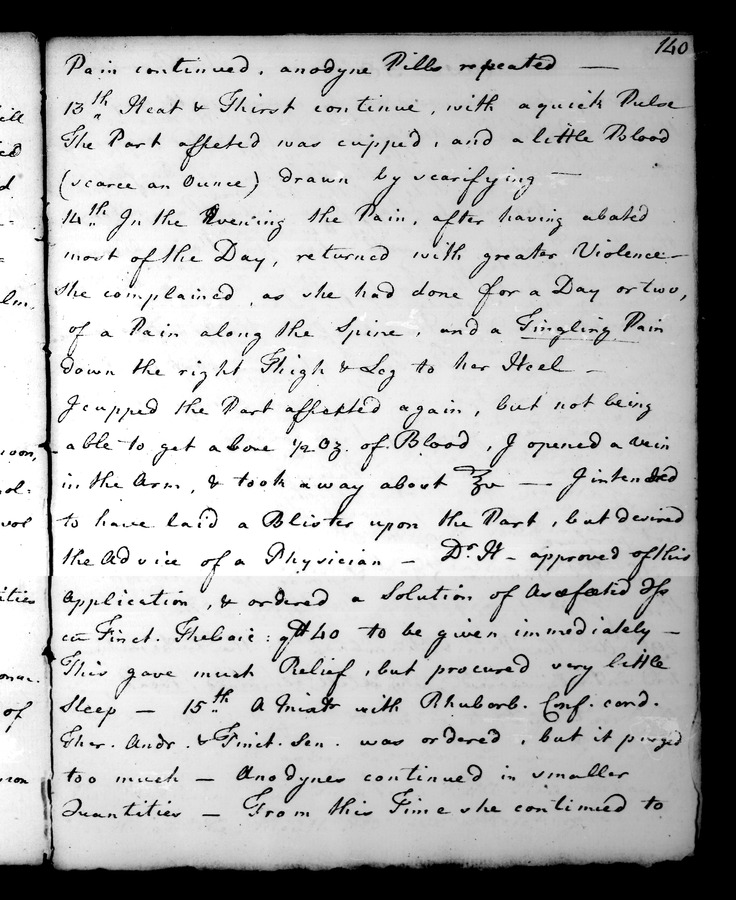 140
Pain continued, anodyne Pills repeated —
13th Heat & Thirst continue, with a quick Pulse
The Part affeted was cupped, and a little Blood
(scarce an Ounce) drawn by scarifying —
14th In the Evening the Pain, after having abated
most of the Day, returned with greater Violence —
She complained, as she had done for a Day or two,
of a Pain along the Spine, and a Tingling Pain
down the right Thigh & Leg to her Heel —
I cupped the Part affected again, but not being
able to get above 1/2 Oz. of Blood, I opened a vein
in the Arm, & took away about ℥v — I intended
to have laid a Blister upon the Part, but desired
the Advice of a Physician — Dr. H — approved of this
Application, & ordered a Solution of Asafœted ʒſs
cu Tinct. Thebaic: gtt 40 to be given immediately —
This gave much Relief, but procured very little
Sleep — 15th A Mixtr with Rhubarb. Conf. card.
Ther. Andr. & Tinct. Sen. was ordered, but it purged
too much — Anodynes continued in smaller
Quantities — From this Time she continued to
ill
lm.
noon,
nol:
vol
ities
onac.
of
mon